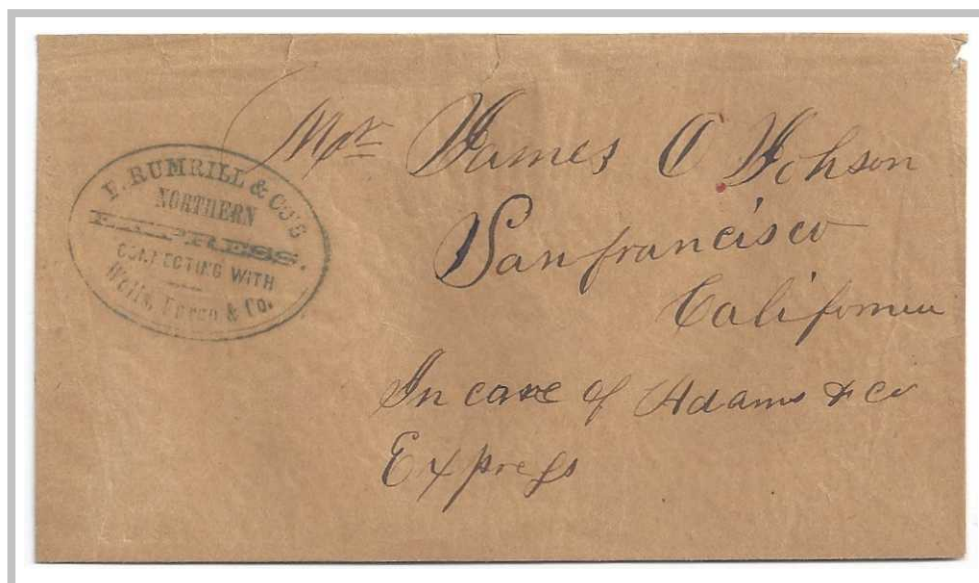 F. RUMRILL & CO'S
NORTHERN
EXPRESS.
CONNECTING WITH
Wells, Fargo & Co.
Mr. James O. Johson
Sanfrancisco
California
In care of Adams & Co
Express